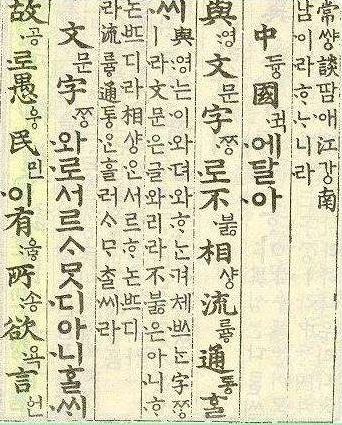 常쌍談땀애江강南
남이라ᄒᆞᄂᆞ니라
中듀ᇰ國귁에달아
與영文문字ᄍᆞᆼ로不부ᇙ相샤ᇰ流류ᇢ通토ᇰᄒᆞᆯ
ᄊᆡ與영는이와뎌와ᄒᆞᄂᆞᆫ겨체ᄡᅳ는字ᄍᆞᆼ
ㅣ라文문은글와리라不부ᇙ은아니ᄒᆞ
논ᄠᅳ디라相샤ᇰᄋᆞᆫ서르ᄒᆞ논ᄠᅳ디
라流류ᇢ通토ᇰᄋᆞᆫ흘러ᄉᆞᄆᆞᄎᆞᆯ씨라
文문字ᄍᆞᆼ와로서르ᄉᆞᄆᆞᆺ디아니ᄒᆞᆯᄊᆡ
故공로愚ᅌᅮᆼ民민이有ᅌᅮᇢ所송欲욕言언